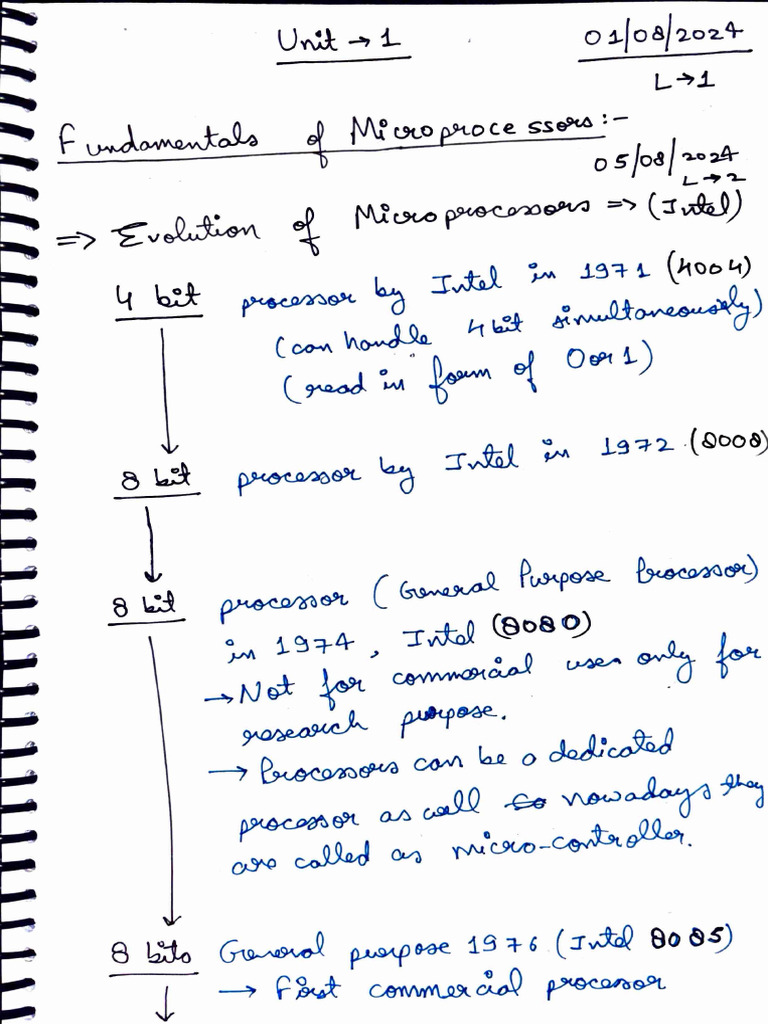 Unit → 1
01/08/2024
L→1
Fundamentals of Microprocessors:-
05/08/2024
L→2
=> Evolution of Microprocessors => (Intel)
4 bit processor by Intel in 1971 (4004)
(can handle 4 bit simultaneously)
(read in form of 0 or 1)
8 bit processor by Intel in 1972 (8008)
8 bit processor (General Purpose Processor)
in 1974, Intel (8080)
→ Not for commercial uses only for
research purpose.
→ Processors can be a dedicated
processor as well nowadays they
are called as micro-controller.
8 bits General purpose 1976 (Intel 8085)
→ First commercial processor